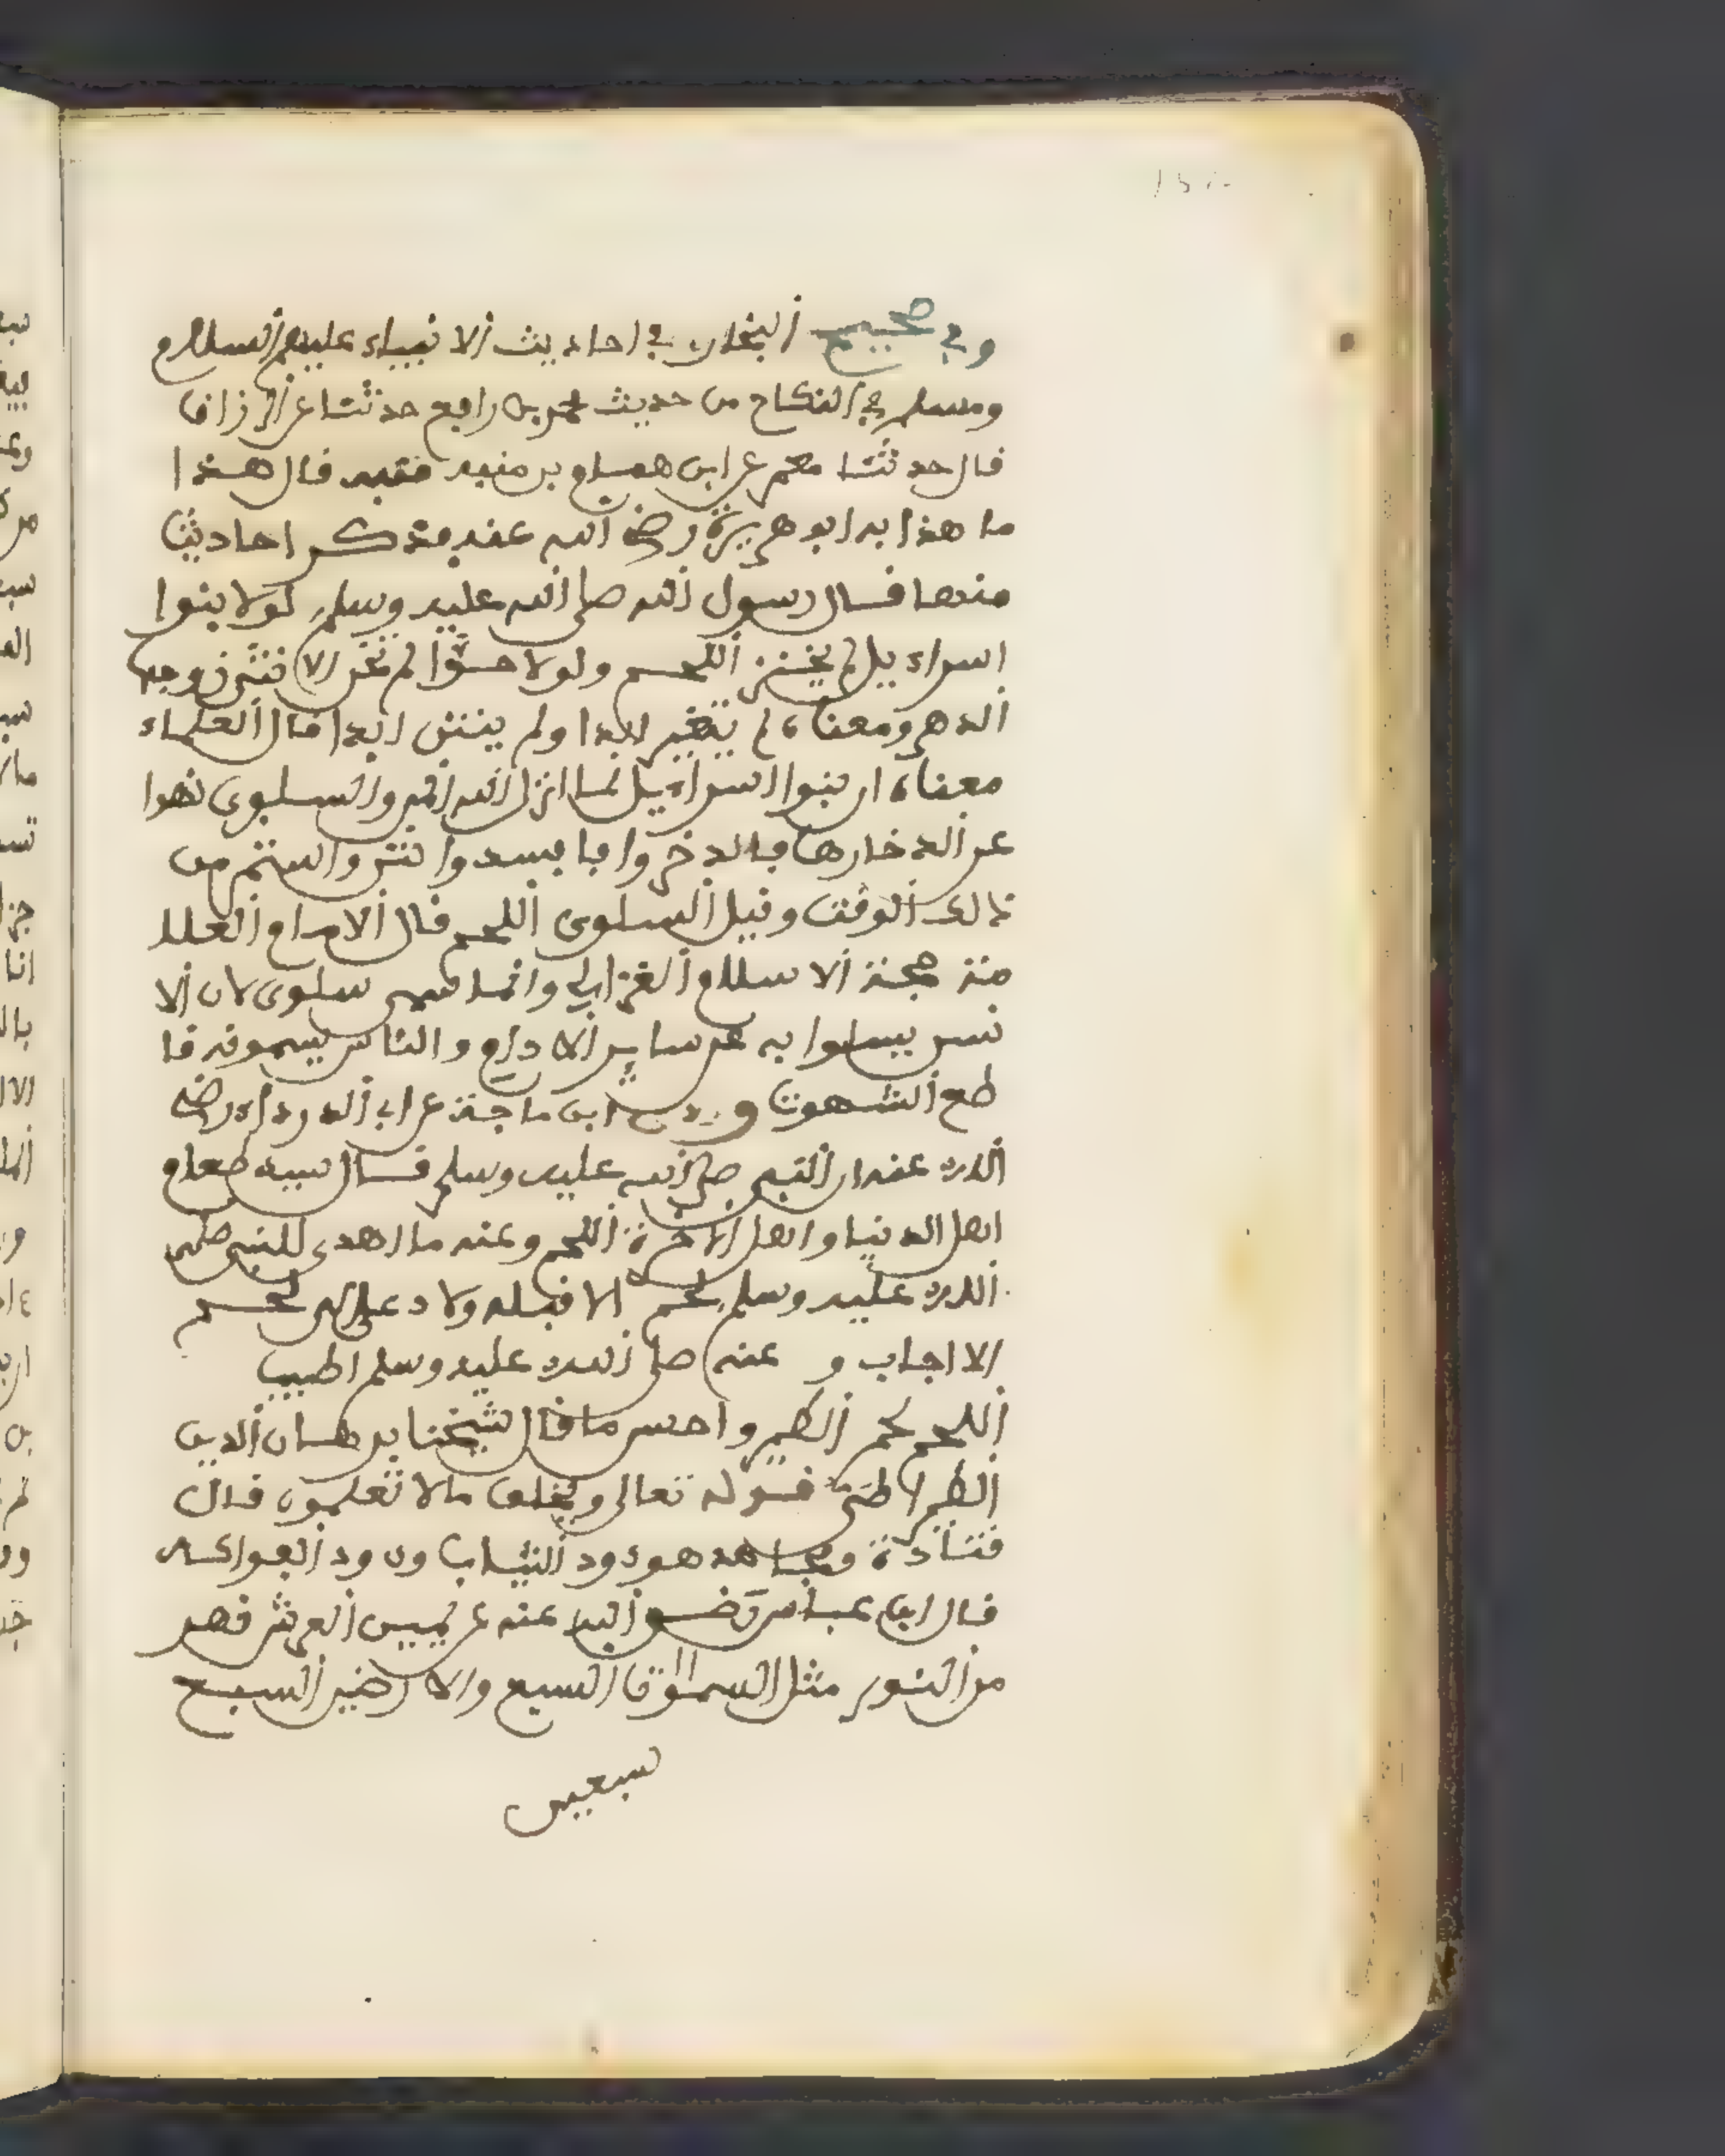 وفي صحيح البخاري في احاديث الانبياء عليهم السلام
ومسلم في النكاح من حديث محمد بن رافع حدثنا عبد الرزاق
قال حدثنا معمر عن ابن همام بن منبه قال هذا
ما هذا به ابو هريرة رضي الله عنه فذكر احاديث
منها قال رسول الله صلى الله عليه وسلم لولا بنوا
اسراءيل لم يخنز اللحم ولولا حوا لم تخن الانثى زوجها
الدهر ومعناه لم يتغير ابدا ولم ينتن ابدا قال العلماء
معناه ان بنوا اسراءيل لما انزل الله المن والسلوى نهوا
عن الدخارها فالدخروا فافسدوا نتن واستمر من
ذالك الوقت وقيل السلوى اللحم قال الامام العلا
منة حجة الاسلام الغزالي وانما سمي سلوى لان الا
نسن يسلوا به عن ساير الادام والناس يسمونه قا
طع الشهوت وروى ابن ماجة عن ابي الدرداء رضي
الله عنه ان النبي صلى الله عليه وسلم قال سيد طعام
اهل الدنيا واهل الاخرة اللحم وعنه ما اهدي للنبي صلى
الله عليه وسلم لحم الا قبله ولا دعي الى لحم
الا اجاب و عنه صلى الله عليه وسلم اطيب
اللحم لحم الظهر واحسن ما قال شيخنا برهان الدين
قوله تعالى ويخلق ما لا تعلمون قال
قتادة ومجاهد هو دود الثياب ودود الفواكه
قال ابن عباس رضي الله عنه عن يمين العرش نهر
من النور مثل السموات السبع والارضين السبع
سبعين